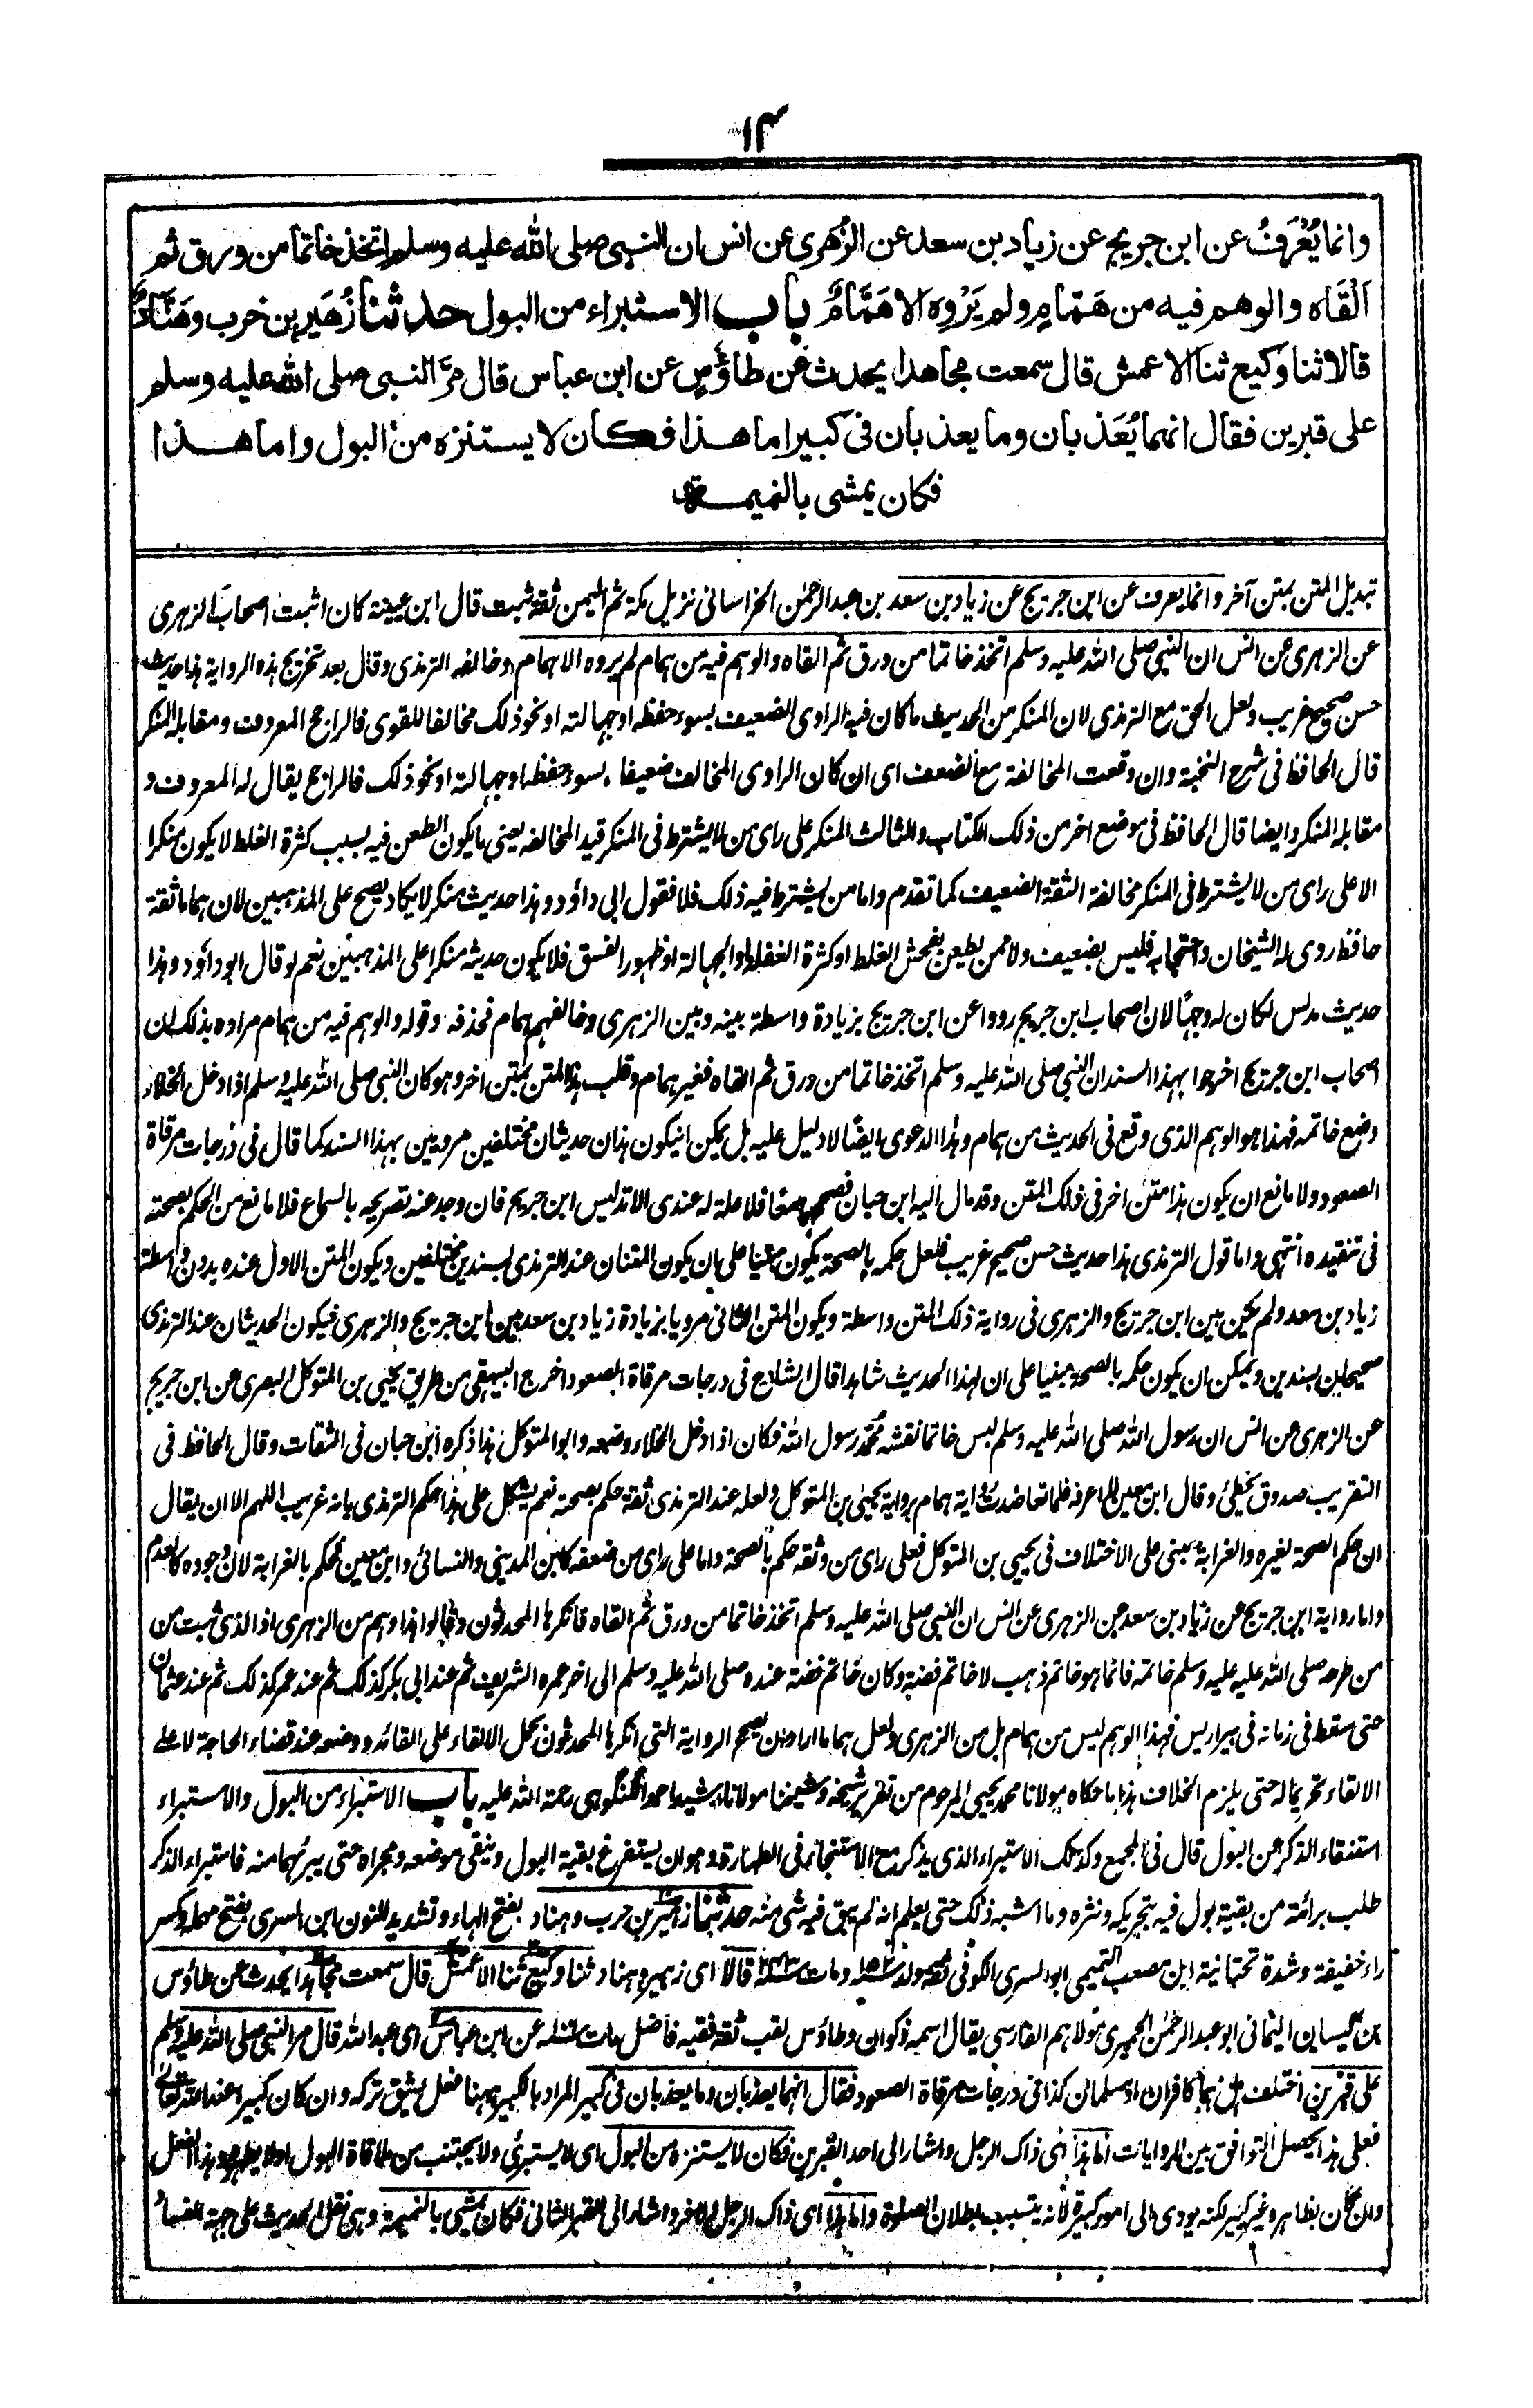 ١٤
وانما يُعْرَفُ عن ابن جريج عن زياد بن سعد عن الزُهرى عن انس ان النبى صلى الله عليه وسلم اتخذ خاتما من ورق ثم
اَلْقَاه والوهم فيه من هَمّامٍ ولم يَرْوِه الا هَمَّامٌ باب الاستبراء من البول حدثنا زُهَير بن حرب وهَنَّادٌ
قالا ثنا وكيع ثنا الاعمش قال سمعت مجاهدا يحدث عن طاؤسٍ عن ابن عباس قال مرّ النبى صلى الله عليه وسلم
على قبرين فقال انهما يُعَذبان وما يعذبان فى كبير اما هذا فكان لا يستنزه من البول واما هذا
فكان يمشى بالنميمة
تبديل المتن بمتن آخر وانما يعرف عن ابن جريج عن زياد بن سعد بن عبد الرحمن الخراسانى نزيل مكة ثم اليمن ثقة ثبت قال ابن عيينة كان اثبت اصحاب الزهرى
عن الزهرى عن انس ان النبى صلى الله عليه وسلم اتخذ خاتما من ورق ثم القاه والوهم فيه من همام لم يروه الا همام وخالفه الترمذى وقال بعد تخريج هذه الرواية هذا حديث
حسن صحيح غريب ولعل الحق مع الترمذى لان المنكر من الحديث ما كان فيه الراوى الضعيف بسوء حفظه او جهالته او نحو ذلك مخالفا للقوى فالراجح المعروف ومقابله المنكر
قال الحافظ فى شرح النخبة وان وقعت المخالفة مع الضعف اى ان كان الراوى المخالف ضعيفا بسوء حفظه او جهالته او نحو ذلك فالراجح يقال له المعروف و
مقابله المنكر وايضا قال الحافظ فى موضع اخر من ذلك الكتاب والثالث المنكر على راى من لا يشترط فى المنكر قيد المخالفه يعنى ما يكون الطعن فيه بسبب كثرة الغلط لا يكون منكرا
الا على راى من لا يشترط فى المنكر مخالفة الثقة الضعيف كما تقدم واما من يشترط فيه ذلك فلا فقول ابى داؤد وهذا حديث منكر لا يكاد يصح على المذهبين لان هماما ثقة
حافظ روى له الشيخان واحتجا به فليس بضعيف ولا ممن يطعن بفحش الغلط او كثرة الغفلة او الجهالة او ظهور الفسق فلا يكون حديثه منكرا على المذهبين نعم لو قال ابو داؤد وهذا
حديث مدلس لكان له وجهًا لان اصحاب ابن جريج رووا عن ابن جريج بزيادة واسطة بينه وبين الزهرى وخالفهم همام فحذفه وقوله والوهم فيه من همام مراده بذلك ان
اصحاب ابن جريج اخرجوا بهذا السند ان النبى صلى الله عليه وسلم اتخذ خاتما من ورق ثم القاه فغير همام وقلب هذا المتن بمتن اخر وهو كان النبى صلى الله عليه وسلم اذا دخل الخلاء
وضع خاتمه فهذا هو الوهم الذى وقع فى الحديث من همام وهذا الدعوى ايضًا لا دليل عليه بل يمكن ان يكون هذان حديثان مختلفين مرويين بهذا السند كما قال فى درجات مرقاة
الصعود ولا مانع ان يكون هذا متن اخر فى ذلك المتن وقد مال اليه ابن حبان فصححهما معًا فلا علة له عندى الا تدليس ابن جريج فان وجد عنه تصريحه بالسماع فلا مانع من الحكم بصحته
فى تنقيده انتهى واما قول الترمذى هذا حديث حسن صحيح غريب فلعل حكمه بالصحة يكون مبنيا على ان يكون المتنان عند الترمذى بسندين مختلفين ويكون المتن الاول عنده بدون واسطة
زياد بن سعد ولم يكن بين ابن جريج والزهرى فى رواية ذلك المتن واسطة ويكون المتن الثانى مرويا بزيادة زياد بن سعد بين ابن جريج والزهرى فيكون الحديثان عند الترمذى
صحيحان بسندين ويمكن ان يكون حكمه بالصحة مبنيا على ان لهذا الحديث شاهدا قال الشارح فى درجات مرقاة الصعود اخرج البيهقى من طريق يحيى بن المتوكل البصرى عن ابن جريج
عن الزهرى عن انس ان رسول الله صلى الله عليه وسلم لبس خاتما نقشه محمد رسول الله فكان اذا دخل الخلاء وضعه وابو المتوكل هذا ذكره ابن حبان فى الثقات وقال الحافظ فى
التقريب صدوق يخطئ وقال ابن معين لا اعرفه فلما تعاضدت رواية همام برواية يحيى بن المتوكل ولعله عند الترمذى ثقة حكم بصحته نعم يشكل على هذا حكم الترمذى بانه غريب اللهم الا ان يقال
ان حكم الصحة لغيره والغرابة يبنى على الاختلاف فى يحيى بن المتوكل فعلى راى من وثقه حكم بالصحة واما على راى من ضعفه كابن المدينى والنسائى وابن معين فحكم بالغرابة لان وجوده كالعدم
واما رواية ابن جريج عن زياد بن سعد عن الزهرى عن انس ان النبى صلى الله عليه وسلم اتخذ خاتما من ورق ثم القاه فانكرها المحدثون وقالوا هذا وهم من الزهرى اذ الذى ثبت من
من طرحه صلى الله عليه وسلم خاتمه فانما هو خاتم ذهب لا خاتم فضة وكان خاتم فضة عنده صلى الله عليه وسلم الى اخر عمره الشريف ثم عند ابى بكر كذلك ثم عند عمر كذلك ثم عند عثمان
حتى سقط فى زمانه فى بير اريس فهذا الوهم ليس من همام بل من الزهرى ولعل هماما اراد ان يصح الرواية التى انكرها المحدثون بحمل الالقاء على القائه ووضعه عند قضاء الحاجة لا على
الالقاء تحريما له حتى يلزم الخلاف هذا ما حكاه مولانا محمد يحيى المرحوم من تقرير شيخه وشيخنا مولانا رشيد احمد الگنگوهى رحمة الله عليه باب الاستبراء من البول والاستبراء
استنقاء الذكر عن البول قال فى المجمع وكذلك الاستبراء الذى يذكر مع الاستنجاء فى الطهارة وهو ان يستفرغ بقية البول وينقى موضعه ومجراه حتى يبرئهما منه فاستبراء الذكر
طلب برائته من بقية بول فيه بتحريكه ونثره وما اشبه ذلك حتى يعلم انه لم يبق فيه شئ منه حدثنا زهير بن حرب وهناد بفتح الهاء وتشديد النون ابن السرى بفتح مهملة وكسر
راء خفيفة وشدة تحتانية ابن مصعب التميمى ابو السرى الكوفى ومات قالا اى زهير وهناد ثنا وكيع ثنا الاعمش قال سمعت مجاهدا يحدث عن طاؤس
بن كيسان اليمانى ابو عبد الرحمن الحميرى مولاهم الفارسى يقال اسمه ذكوان وطاؤس لقب ثقة فقيه فاضل مات عن ابن عباس اى عبد الله قال مر النبى صلى الله عليه وسلم
على قبرين اختلف هل هما كافران او مسلمان كذا فى درجات مرقاة الصعود فقال انهما يعذبان وما يعذبان فى كبير المراد بالكبير ههنا فعل يشق تركه وان كان كبيرا عند الله تعالى
فعلى هذا يحصل التوافق بين الروايات اما هذا اى ذاك الرجل واشار الى احد القبرين فكان لا يستنزه من البول اى لا يستبرئ ولا يجتنب من ملاقاة البول وهذا الفعل
وان كان بظاهره غير كبير لكنه يودى الى امور كبيرة لانه يتسبب بطلان الصلوة واما هذا اى ذاك الرجل الاخر واشار الى القبر الثانى فكان يمشى بالنميمة وهى نقل الحديث على جهة الفساد